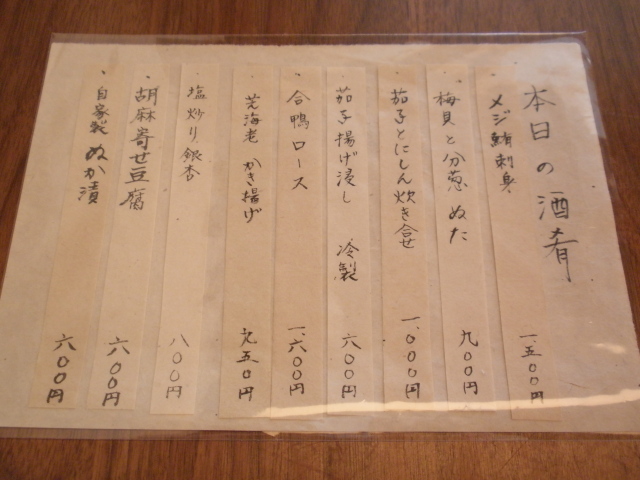 本日の酒肴
メジ鮪刺身 一、五〇〇円
梅貝と分葱ぬた 九〇〇円
茄子とにしん炊き合せ 一、〇〇〇円
茄子揚げ浸し 冷製 六〇〇円
合鴨ロース 一、六〇〇円
芝海老かき揚げ 九五〇円
塩炒り銀杏 八〇〇円
胡麻寄せ豆腐 六〇〇円
自家製ぬか漬 六〇〇円